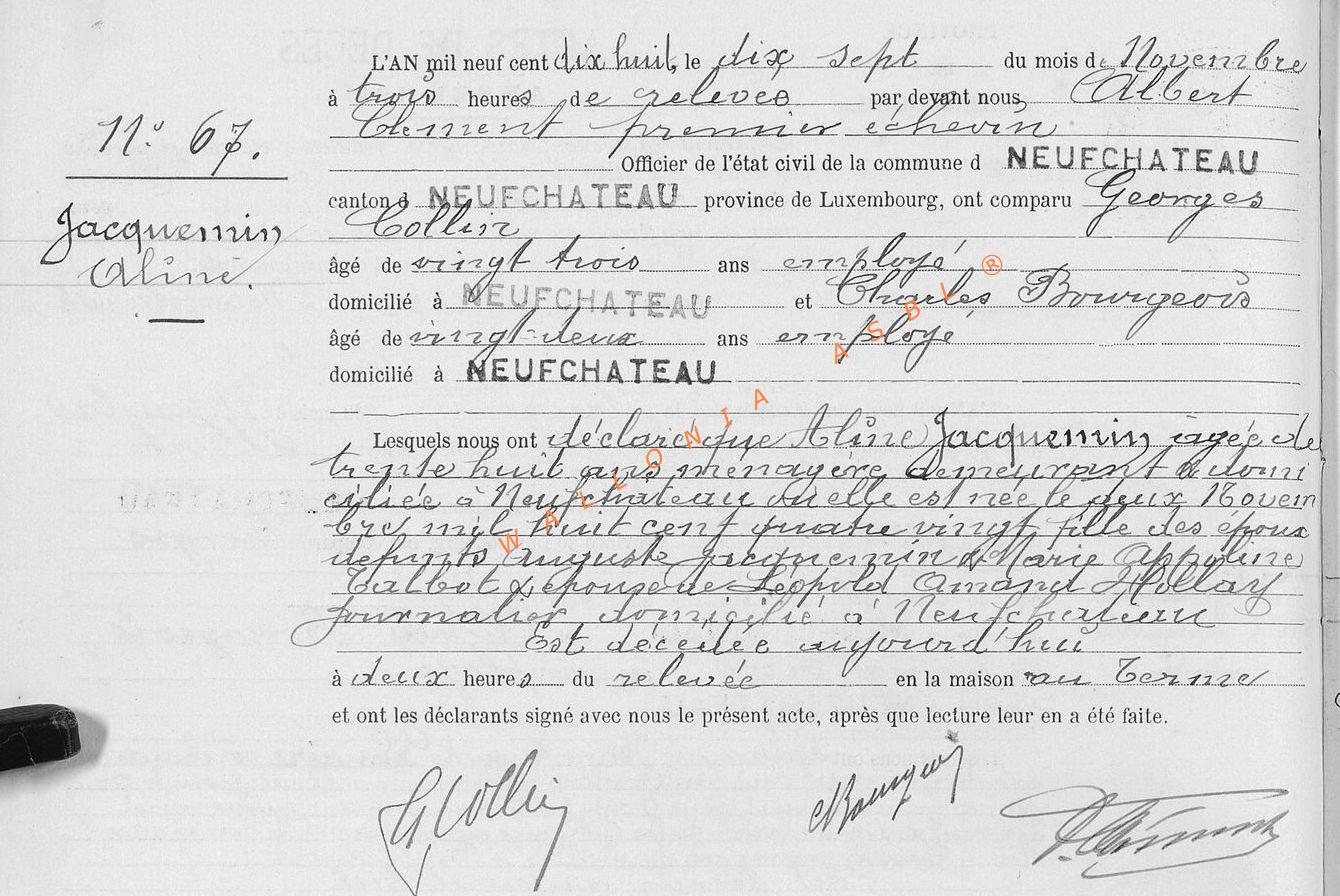 L'AN mil neuf cent dix huit, le dix sept du mois de Novembre
à trois heures de relevée par devant nous, Albert
Clement premier échevin
Officier de l'état civil de la commune d NEUFCHATEAU
N° 67.
canton d NEUFCHATEAU province de Luxembourg, ont comparu Georges
Collin
Jacquemin
Aline.
âgé de vingt trois ans employé
domicilié à NEUFCHATEAU et Charles Bourgeois
âgé de vingt deux ans employé
domicilié à NEUFCHATEAU
Lesquels nous ont déclaré que Aline Jacquemin âgée de
trente huit ans ménagère demeurant & domi
ciliée à Neufchateau ou elle est née le deux Novem
bre mil huit cent quatre vingt fille des époux
défunts Auguste Jacquemin & Marie Appoline
Talbot & épouse de Léopold Amand Hollay
journalier domicilié à Neufchateau
Est décédée aujourd'hui
à deux heures du relevée en la maison au Terme
et ont les déclarants signé avec nous le présent acte, après que lecture leur en a été faite.
G Collin
Ch Bourgeois
A. Clément
WALLONIA ASBL ®